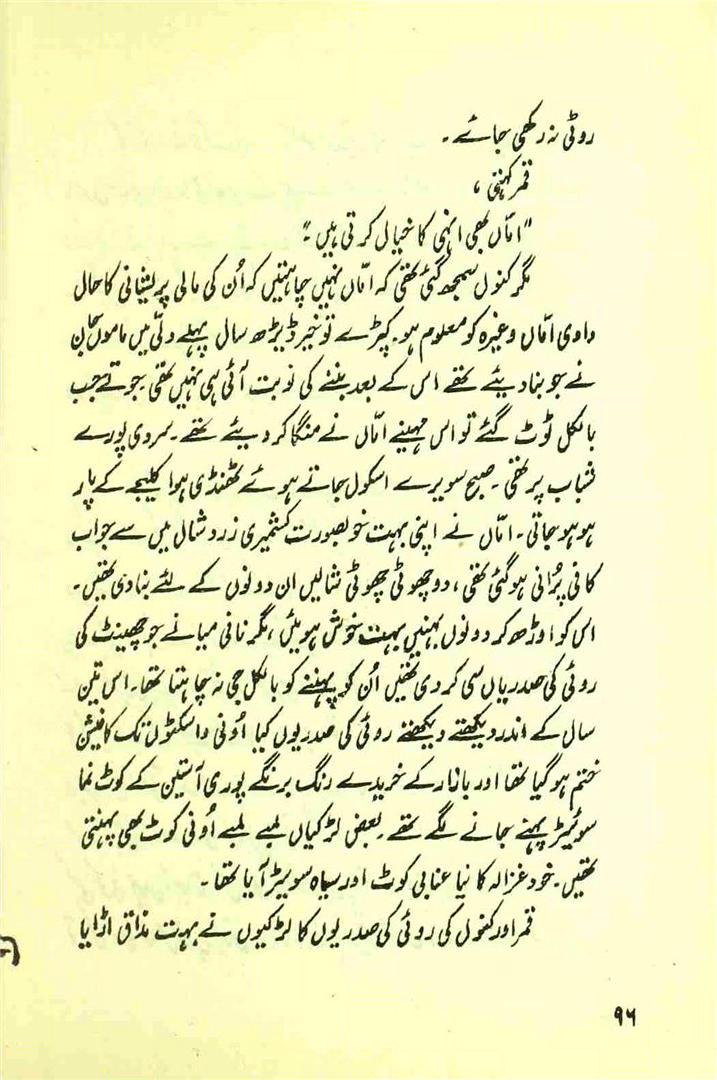 روٹی نہ رکھی جائے۔
قمر کہتی،
"امّاں بھی انہی کا خیال کرتی ہیں۔"
مگر کنول سمجھ گئی تھی کہ امّاں نہیں چاہتیں کہ اُن کی مالی پریشانی کا حال
دادی امّاں وغیرہ کو معلوم ہو۔ کپڑے تو خیر ڈیڑھ سال پہلے دلّی میں ماموں جان
نے جو بنا دیئے تھے اس کے بعد بننے کی نوبت آئی ہی نہیں تھی۔ جوتے جب
بالکل ٹوٹ گئے تو اس مہینے امّاں نے منگا کر دیئے تھے۔ سردی پورے
شباب پر تھی۔ صبح سویرے اسکول جاتے ہوئے ٹھنڈی ہوا کلیجے کے پار
ہو ہو جاتی۔ امّاں نے اپنی بہت خوبصورت کشمیری زرد شال میں سے جو اب
کافی پُرانی ہو گئی تھی، دو چھوٹی چھوٹی شالیں ان دونوں کے لئے بنا دی تھیں۔
اس کو اوڑھ کر دونوں بہنیں بہت خوش ہوئیں، مگر نانی میا نے جو چھینٹ کی
روئی کی صدریاں سی کر دی تھیں اُن کو پہننے کو بالکل جی نہ چاہتا تھا۔ اس تین
سال کے اندر دیکھتے دیکھتے روئی کی صدریوں کیا اُونی واسکٹوں تک کا فیشن
ختم ہو گیا تھا اور بازار کے خریدے رنگ برنگے پوری آستین کے کوٹ نما
سوئیٹر پہنے جانے لگے تھے۔ بعض لڑکیاں لمبے لمبے اُونی کوٹ بھی پہنتی
تھیں۔ خود غزالہ کا نیا عنابی کوٹ اور سیاہ سوئیٹر آیا تھا۔
قمر اور کنول کی روئی کی صدریوں کا لڑکیوں نے بہت مذاق اڑایا
۹۶